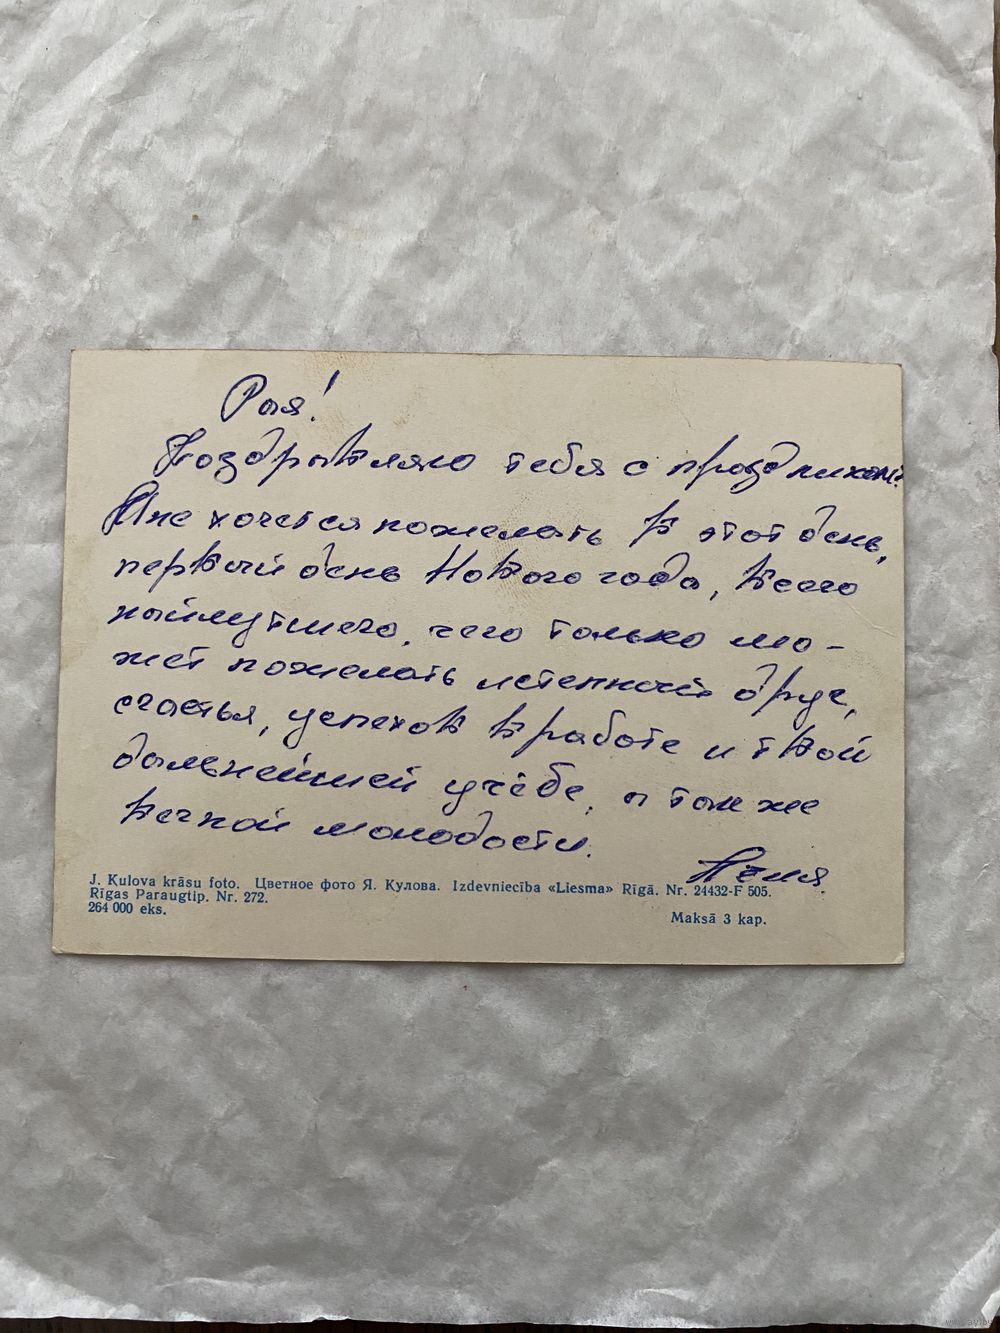 Рая!
Поздравляю тебя с праздником!
Мне хочется пожелать в этот день,
первый день Нового года, всего
найлутшего, чего только мо-
жет пожелать истенный друг,
счастья, успехов в работе и твоей
дальнейшей учёбе, а так же
вечной молодости.
J. Kulova krāsu foto. Цветное фото Я. Кулова. Izdevniecība «Liesma» Rīgā. Nr. 24432-F 505.
Rīgas Paraugtip. Nr. 272.
264 000 eks.
Maksā 3 kap.